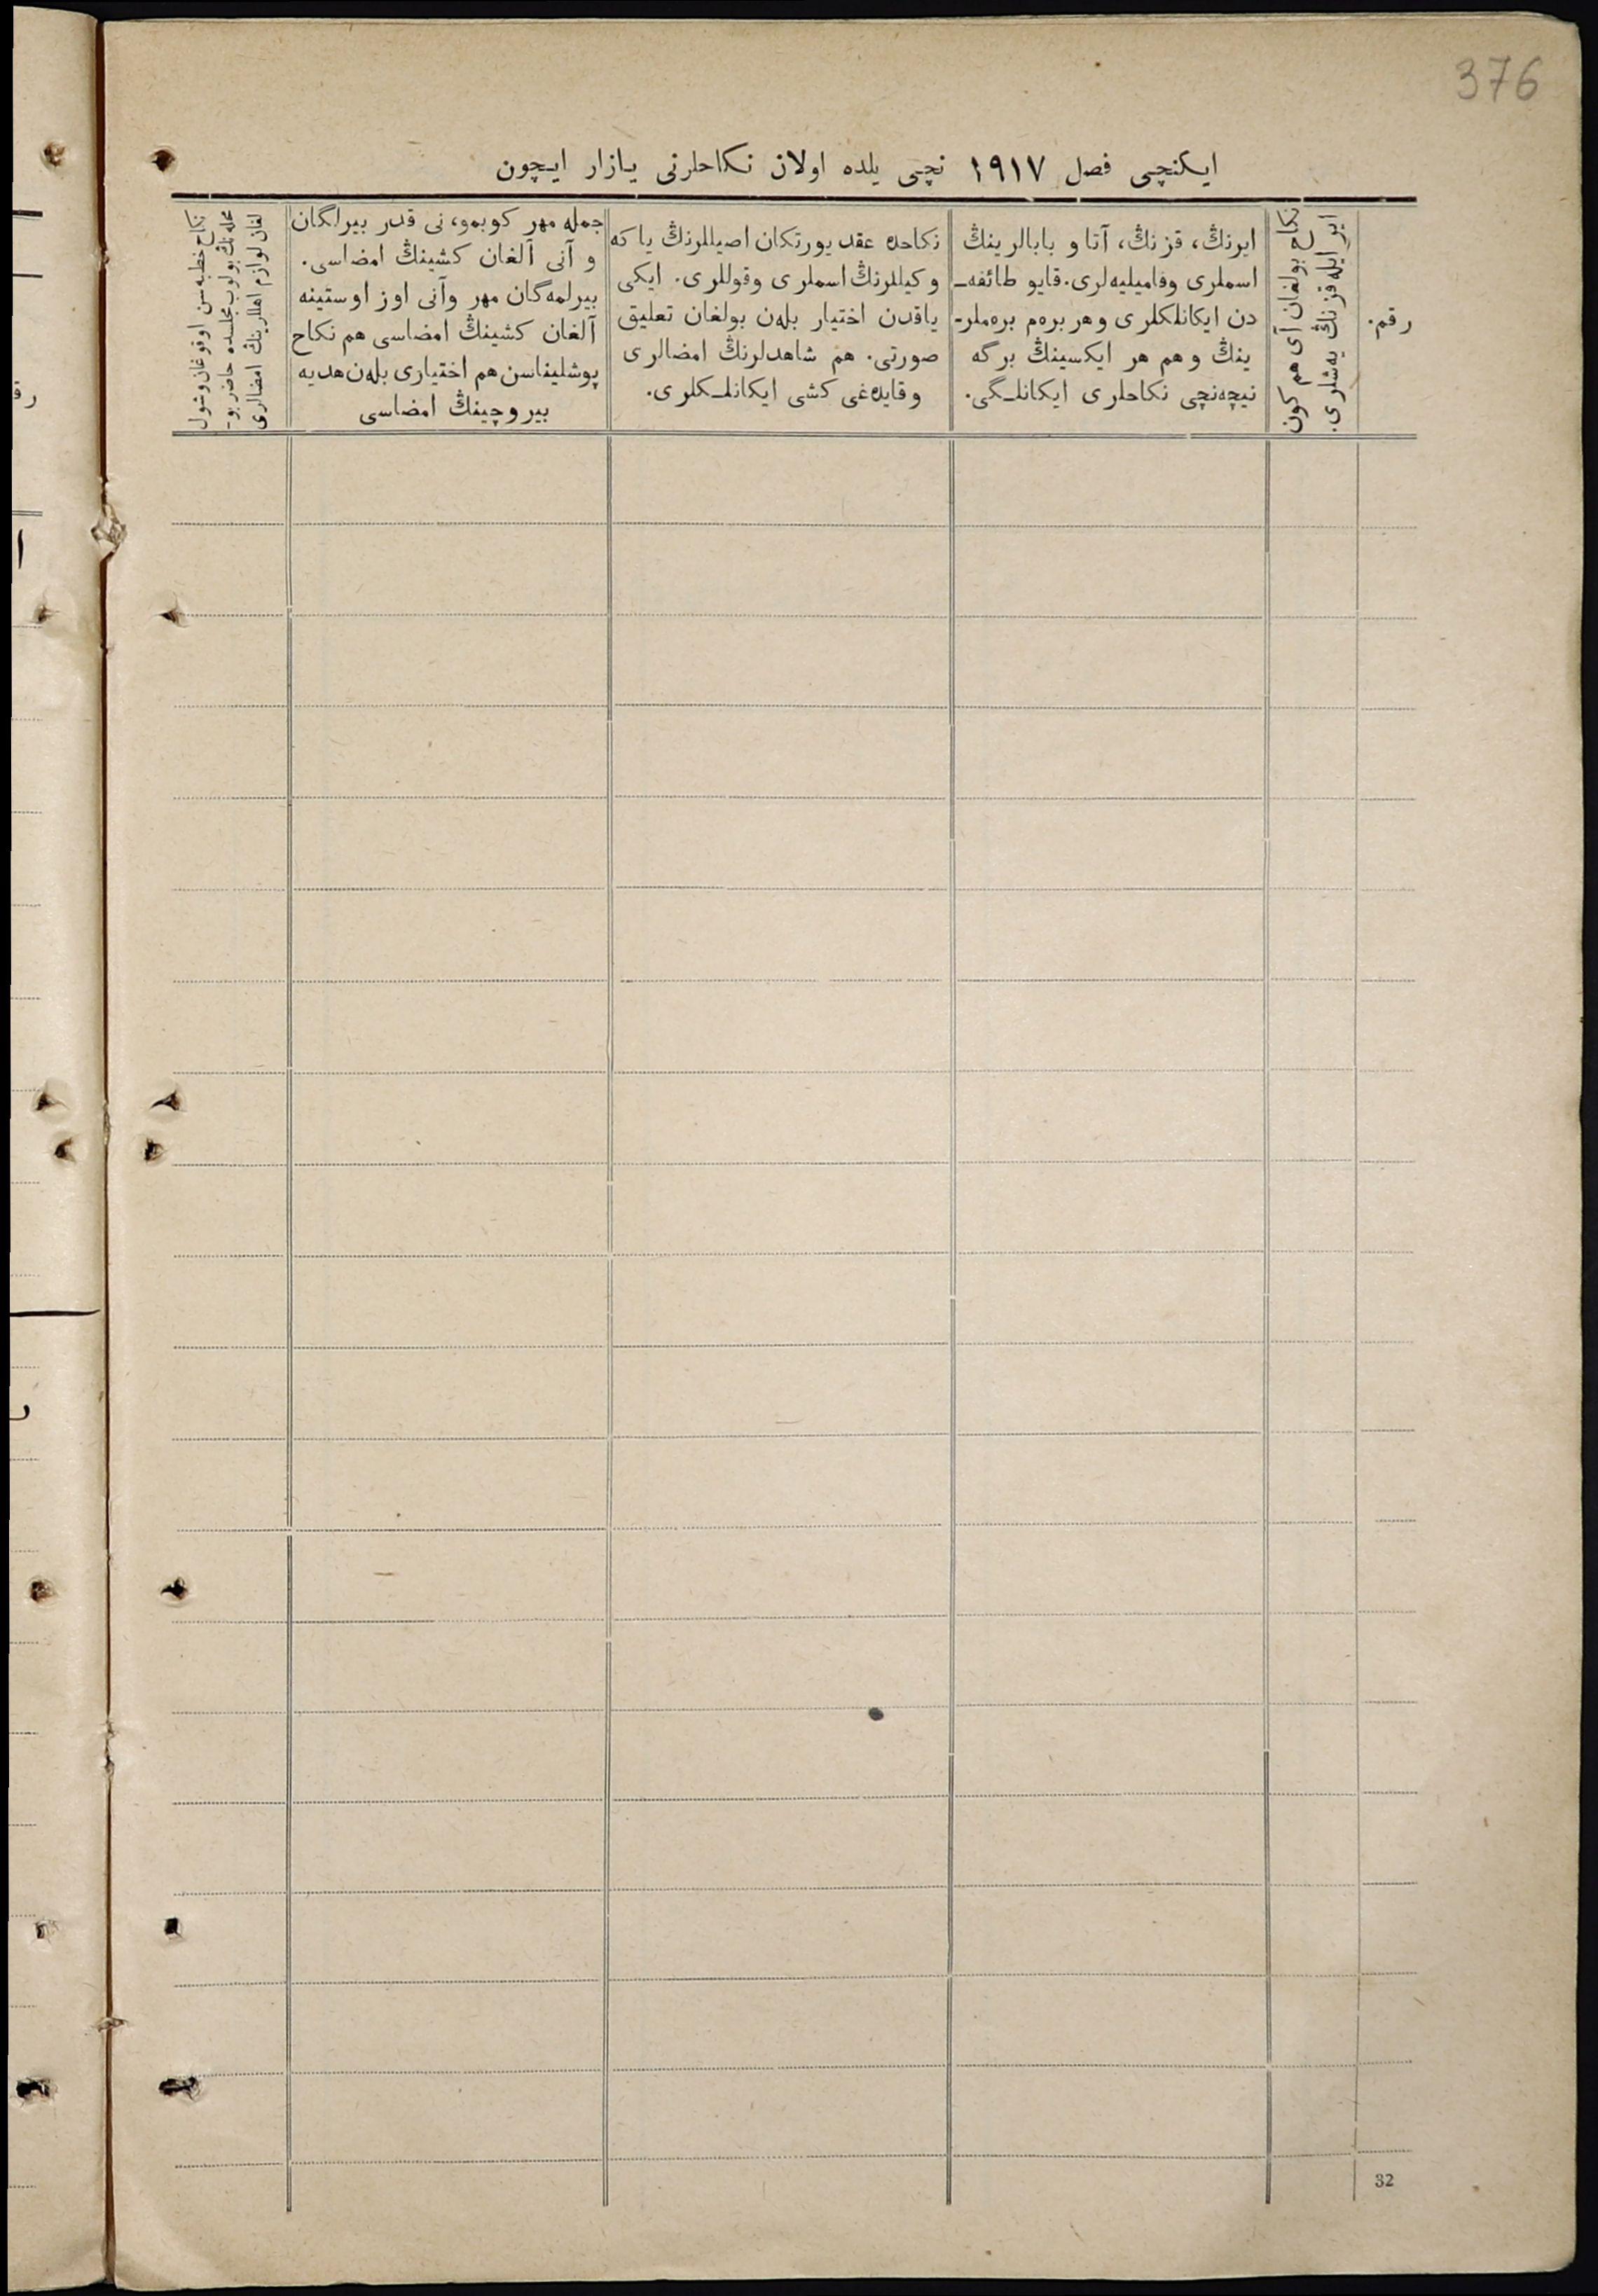 376
ایکنچی فصل ١٩١٧ نچی یلده اولان نکاحلرنی یازار ایچون
رقم.
نکاح بولغان آی هم کون
ایر ایله قزنڭ یه‌شلری.
ایرنڭ، قزنڭ، آتا و بابالرینڭ
اسملری وفامیلیه‌لری. قایو طائفه‌ـ
دن ایکانلکلری وهر بره‌م بره‌ملر-
ینڭ وهم هر ایکسینڭ برگه
نیچه‌نچی نکاحلری ایکانلـگی.
نکاحده عقد یورتکان اصیللرنڭ یا که
وکیللرنڭ اسملری وقوللری. ایکی
یاقدن اختیار بله‌ن بولغان تعلیق
صورتی. هم شاهدلرنڭ امضالری
وقایده‌غی کشی ایکانلـکلری.
جمله مهر کوبمو، نی قدر بیرلگان
و آنی آلغان کشینڭ امضاسی.
بیرلمه‌گان مهر وآنی اوز اوستینه
آلغان کشینڭ امضاسی هم نکاح
پوشلیناسن هم اختیاری بله‌ن هدیه
بیروچینڭ امضاسی
نکاح خطبه‌سن اوقوغان وشول
محله‌نڭ بولوب مجلسده حاضر بو-
لغان لوازم اهللرینڭ امضالری
32